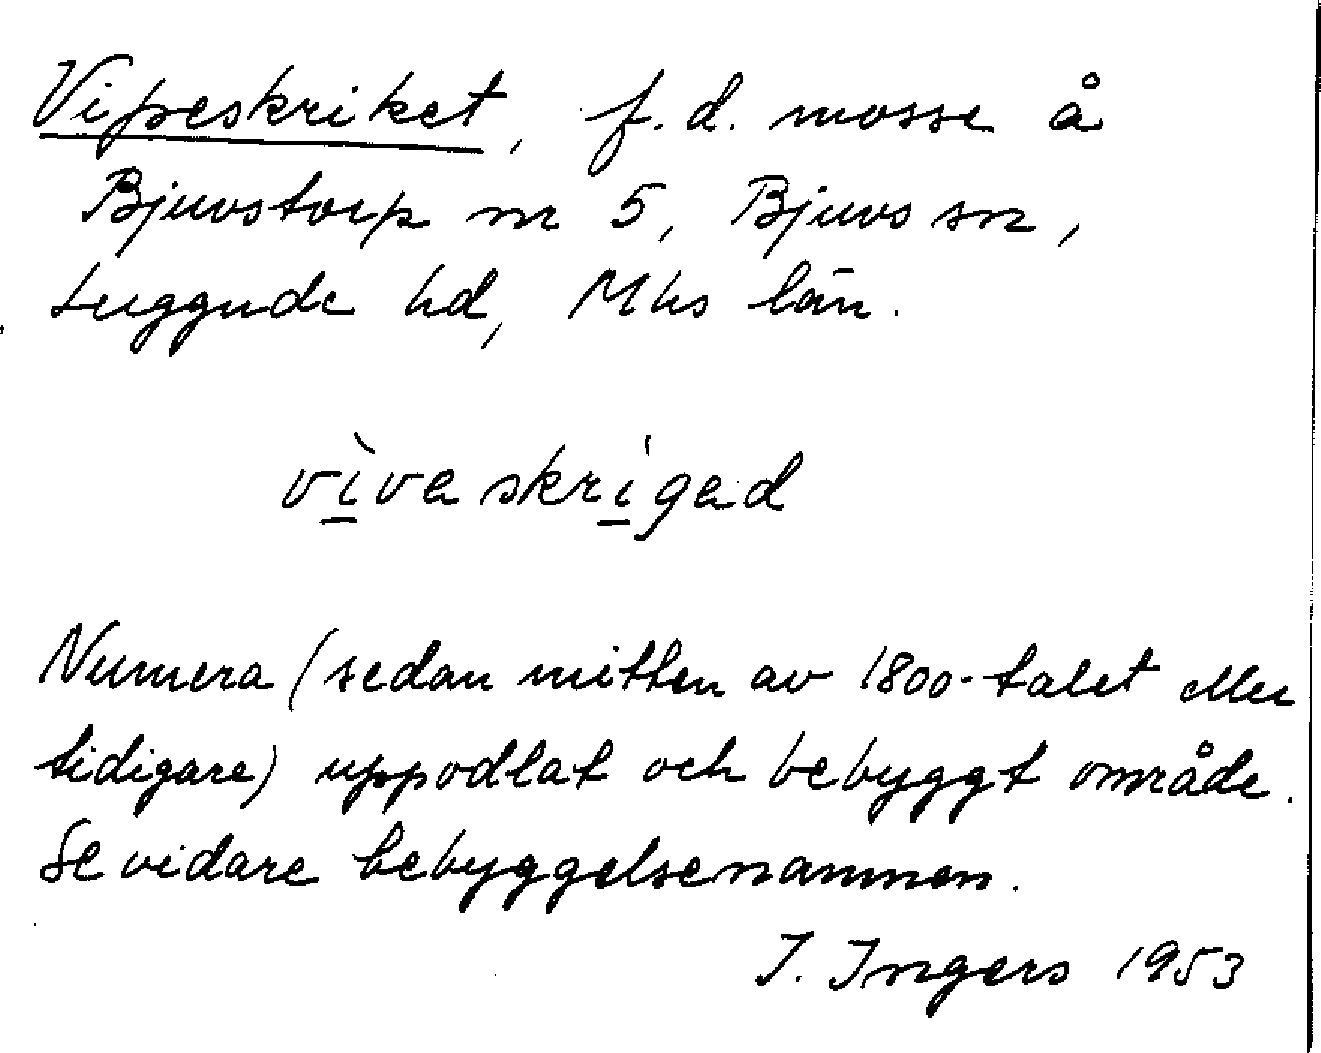 Vipeskriket, f.d. mosse å
Bjuvstorp nr 5, Bjuvs sn,
Luggude hd, Mhs län.
vìvaskrigad
Numera (sedan mitten av 1800-talet eller
tidigare) uppodlat och bebyggt område.
Se vidare bebyggelsenamnen.
I. Ingers 1953